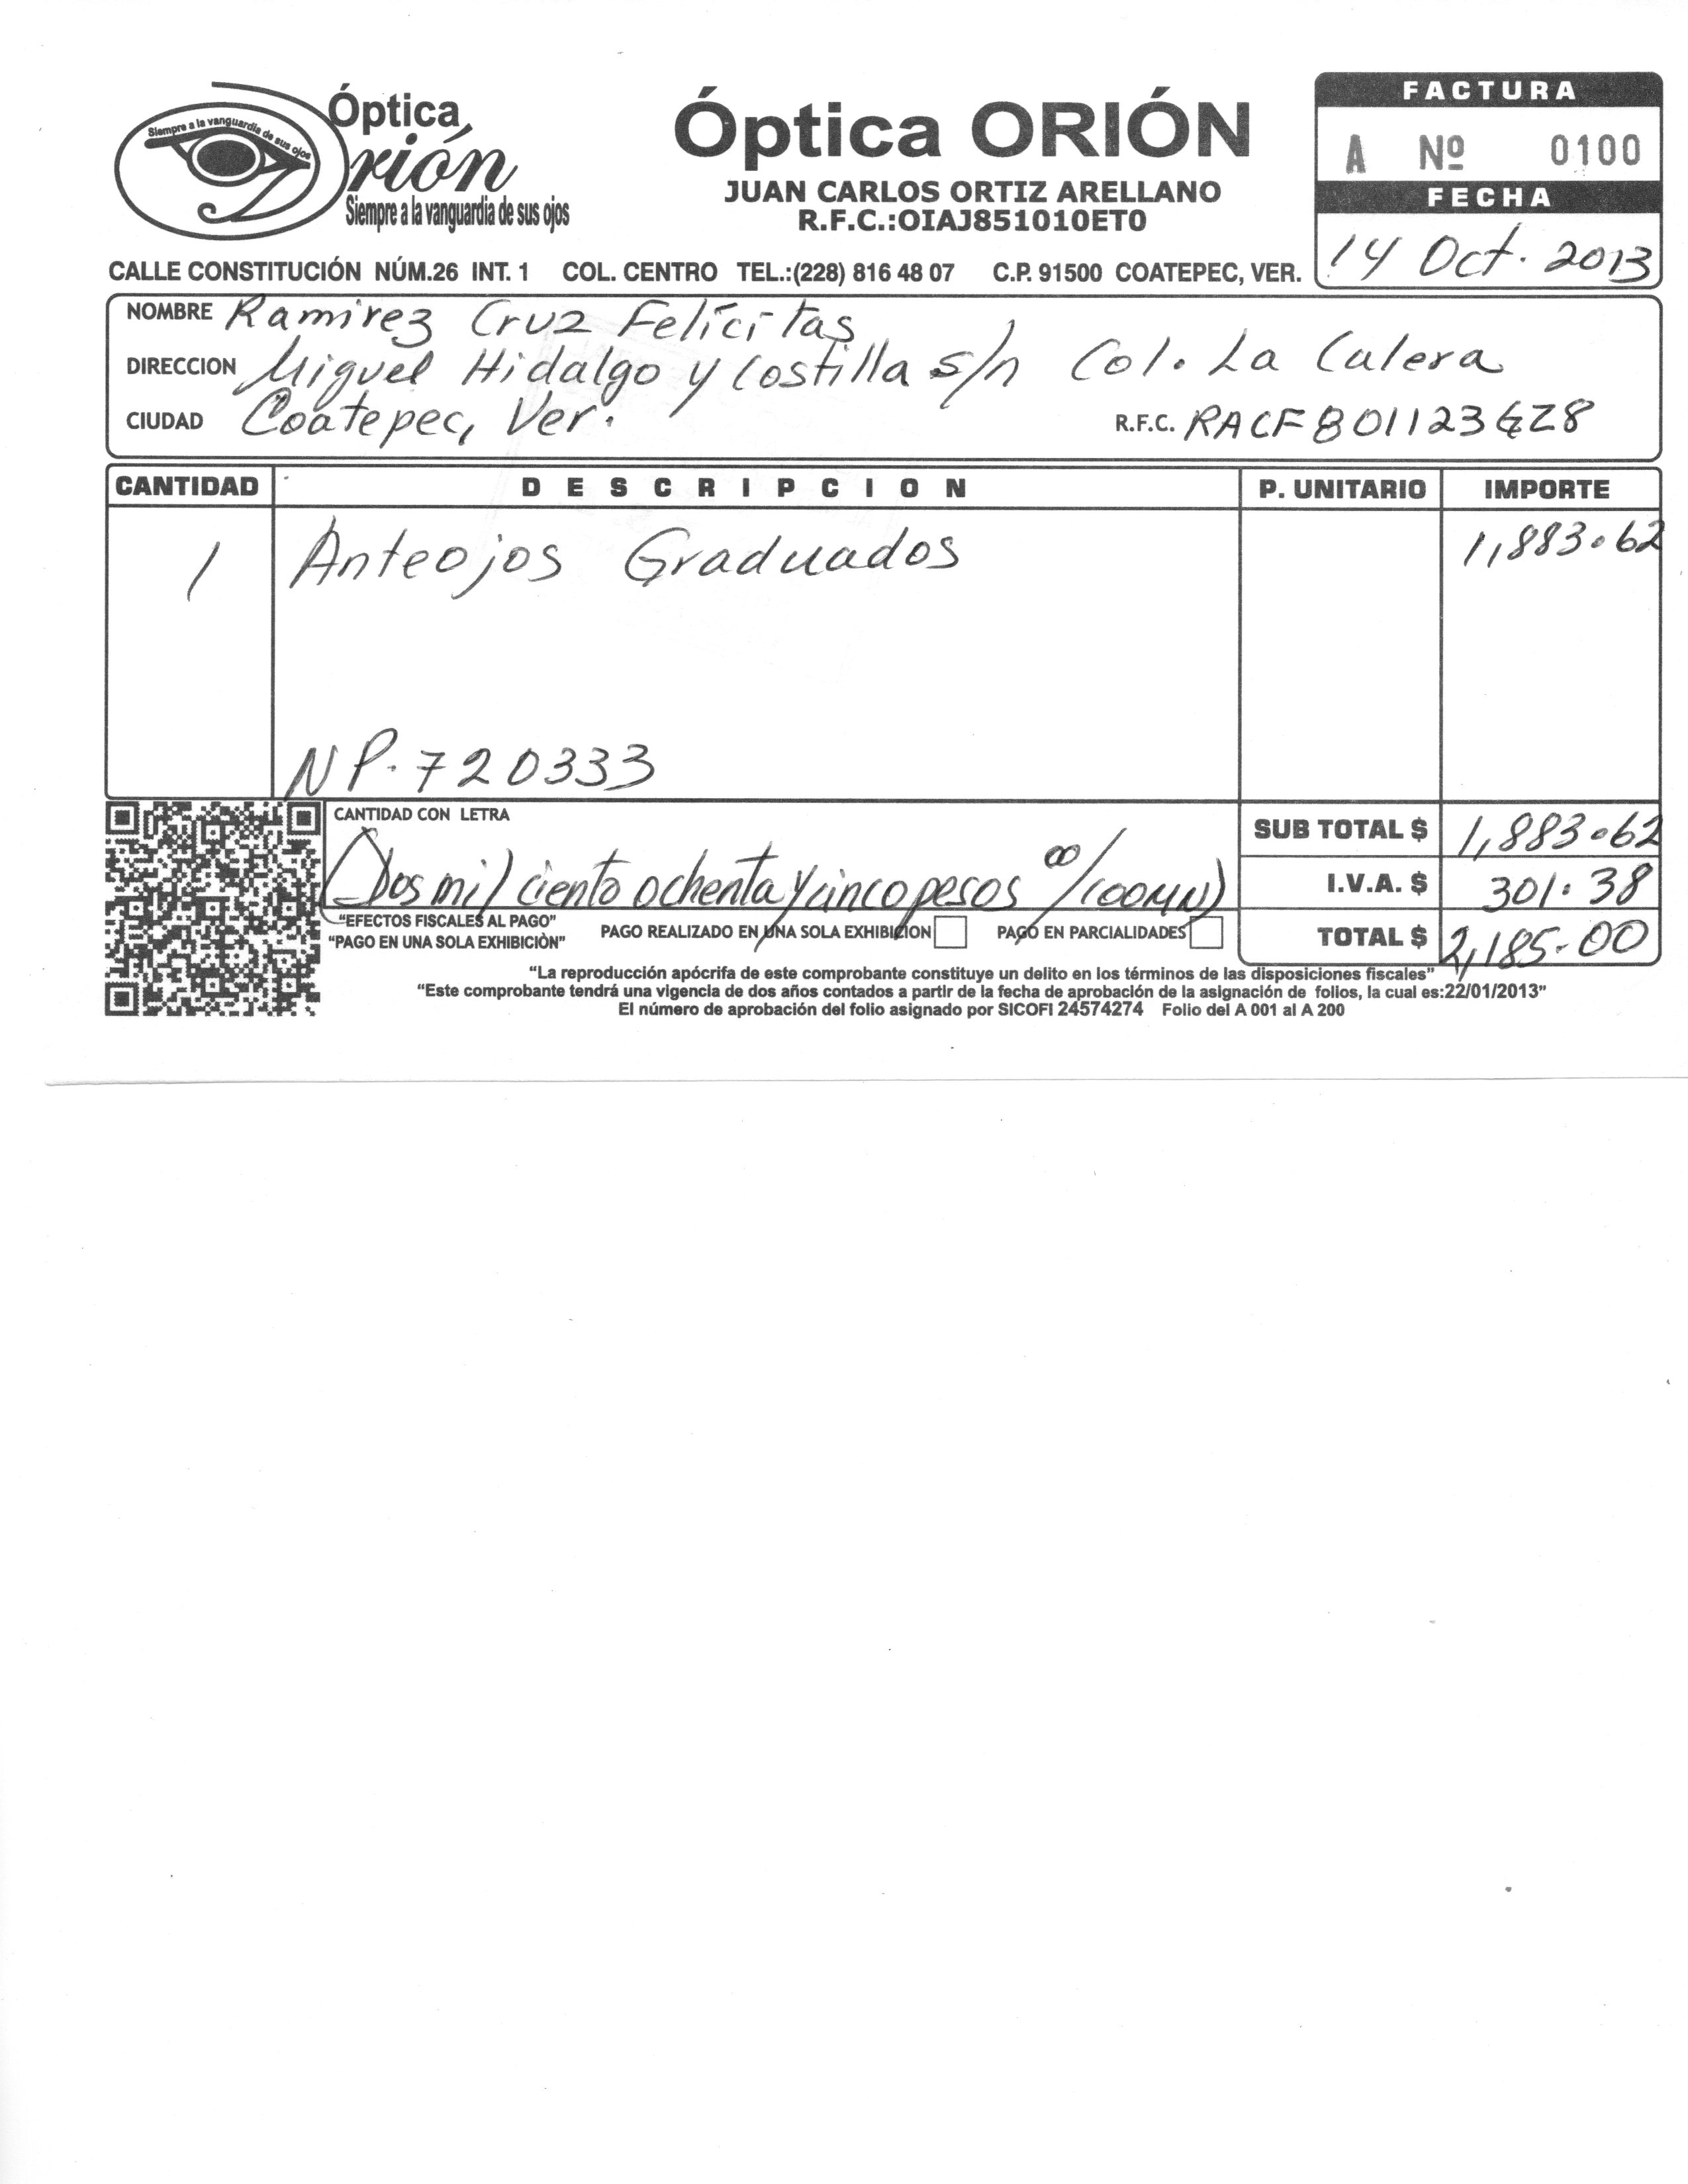 Siempre a la vanguardia de sus ojos
Óptica
Orión
Siempre a la vanguardia de sus ojos
Óptica ORIÓN
JUAN CARLOS ORTIZ ARELLANO
R.F.C.:OIAJ851010ET0
FACTURA
A Nº 0100
FECHA
14 Oct. 2013
CALLE CONSTITUCIÓN NÚM.26 INT. 1 COL. CENTRO TEL.:(228) 816 48 07 C.P. 91500 COATEPEC, VER.
NOMBRE Ramirez Cruz Felicitas
DIRECCION Miguel Hidalgo y Costilla s/n Col. La Calera
CIUDAD Coatepec, Ver. R.F.C. RACF801123GZ8
CANTIDAD DESCRIPCION P. UNITARIO IMPORTE
1 Anteojos Graduados 1,883.62
NP. 720333
CANTIDAD CON LETRA
(Dos mil ciento ochenta y cinco pesos 00/100MN)
SUB TOTAL $ 1,883.62
I.V.A. $ 301.38
TOTAL $ 2,185.00
"EFECTOS FISCALES AL PAGO"
"PAGO EN UNA SOLA EXHIBICIÒN"
PAGO REALIZADO EN UNA SOLA EXHIBICION PAGO EN PARCIALIDADES
"La reproducción apócrifa de este comprobante constituye un delito en los términos de las disposiciones fiscales"
"Este comprobante tendrá una vigencia de dos años contados a partir de la fecha de aprobación de la asignación de folios, la cual es:22/01/2013"
El número de aprobación del folio asignado por SICOFI 24574274 Folio del A 001 al A 200